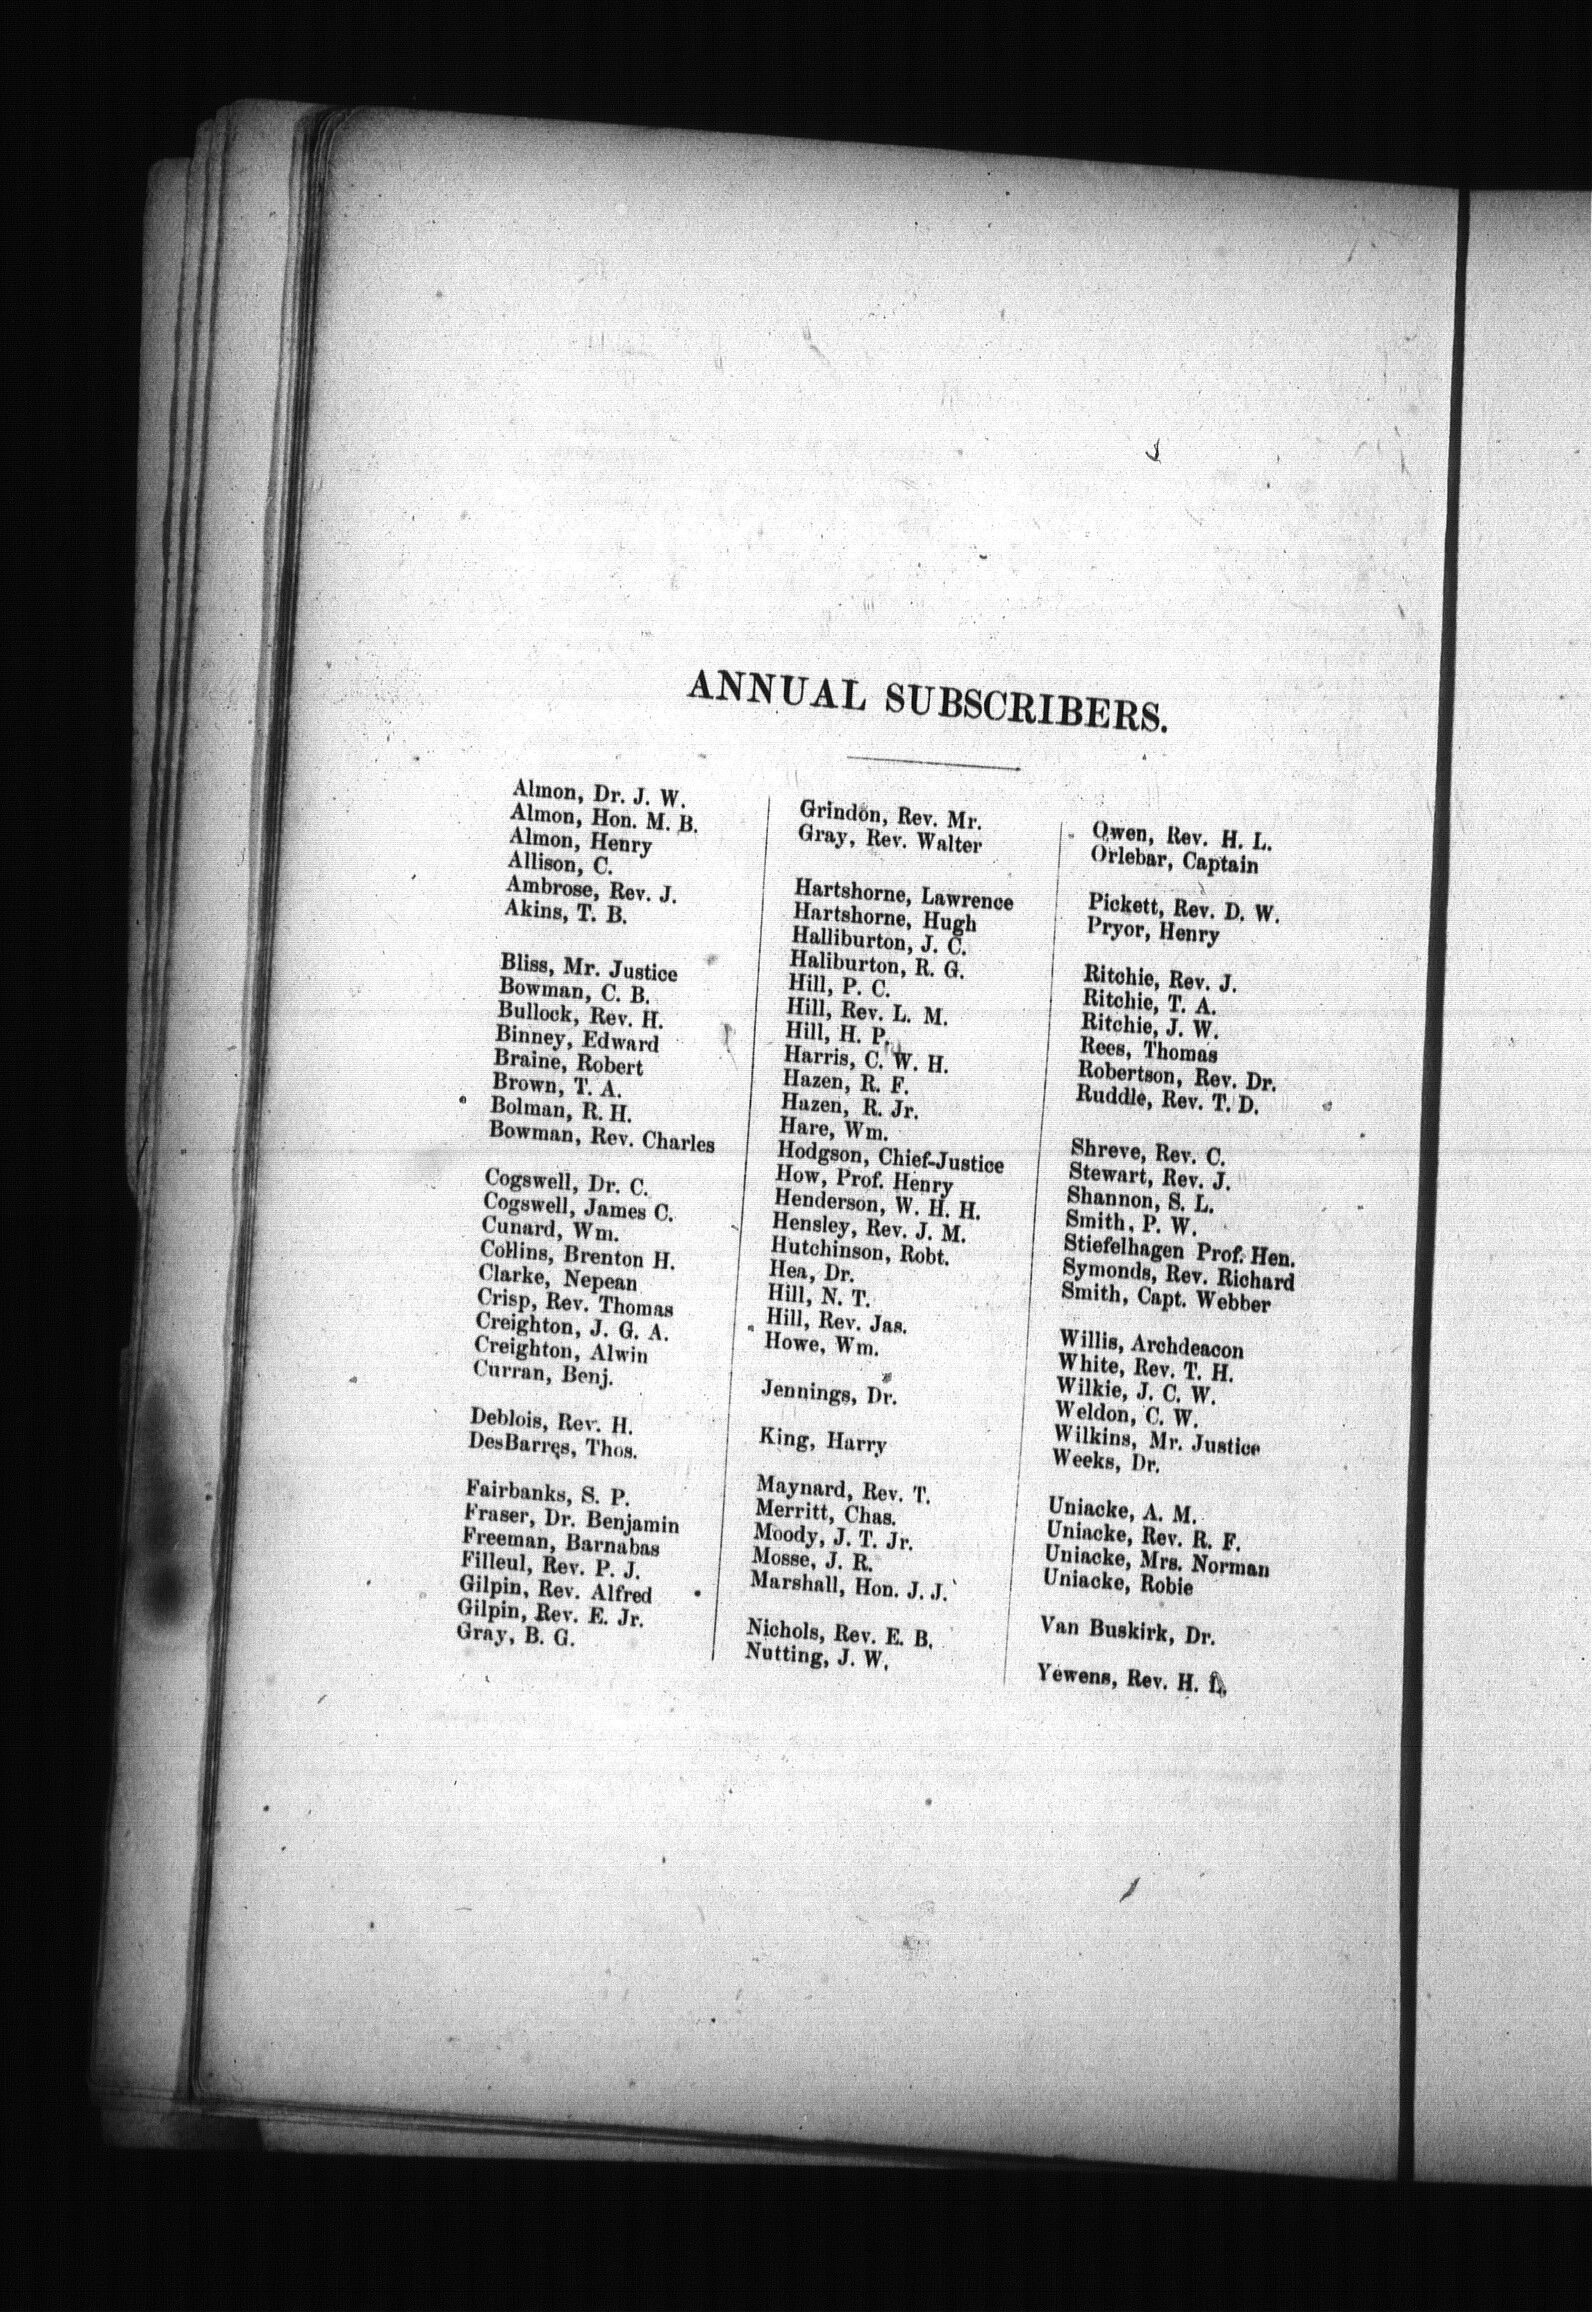 ANNUAL SUBSCRIBERS.
Almon, Dr. J. W.
Almon, Hon. M. B.
Almon, Henry
Allison, C.
Ambrose, Rev. J.
Akins, T. B.
Bliss, Mr. Justice
Bowman, C. B.
Bullock, Rev. H.
Binney, Edward
Braine, Robert
Brown, T. A.
Bolman, R. H.
Bowman, Rev. Charles
Cogswell, Dr. C.
Cogswell, James C.
Cunard, Wm.
Collins, Brenton H.
Clarke, Nepean
Crisp, Rev. Thomas
Creighton, J. G. A.
Creighton, Alwin
Curran, Benj.
Deblois, Rev. H.
DesBarres, Thos.
Fairbanks, S. P.
Fraser, Dr. Benjamin
Freeman, Barnabas
Filleul, Rev. P. J.
Gilpin, Rev. Alfred
Gilpin, Rev. E. Jr.
Gray, B. G.
Grindon, Rev. Mr.
Gray, Rev. Walter
Hartshorne, Lawrence
Hartshorne, Hugh
Halliburton, J. C.
Haliburton, R. G.
Hill, P. C.
Hill, Rev. L. M.
Hill, H. P.
Harris, C. W. H.
Hazen, R. F.
Hazen, R. Jr.
Hare, Wm.
Hodgson, Chief-Justice
How, Prof. Henry
Henderson, W. H. H.
Hensley, Rev. J. M.
Hutchinson, Robt.
Hea, Dr.
Hill, N. T.
Hill, Rev. Jas.
Howe, Wm.
Jennings, Dr.
King, Harry
Maynard, Rev. T.
Merritt, Chas.
Moody, J. T. Jr.
Mosse, J. R.
Marshall, Hon. J. J.
Nichols, Rev. E. B.
Nutting, J. W.
Owen, Rev. H. L.
Orlebar, Captain
Pickett, Rev. D. W.
Pryor, Henry
Ritchie, Rev. J.
Ritchie, T. A.
Ritchie, J. W.
Rees, Thomas
Robertson, Rev. Dr.
Ruddle, Rev. T. D.
Shreve, Rev. C.
Stewart, Rev. J.
Shannon, S. L.
Smith, P. W.
Stiefelhagen Prof. Hen.
Symonds, Rev. Richard
Smith, Capt. Webber
Willis, Archdeacon
White, Rev. T. H.
Wilkie, J. C. W.
Weldon, C. W.
Wilkins, Mr. Justice
Weeks, Dr.
Uniacke, A. M.
Uniacke, Rev. R. F.
Uniacke, Mrs. Norman
Uniacke, Robie
Van Buskirk, Dr.
Yewens, Rev. H. L.